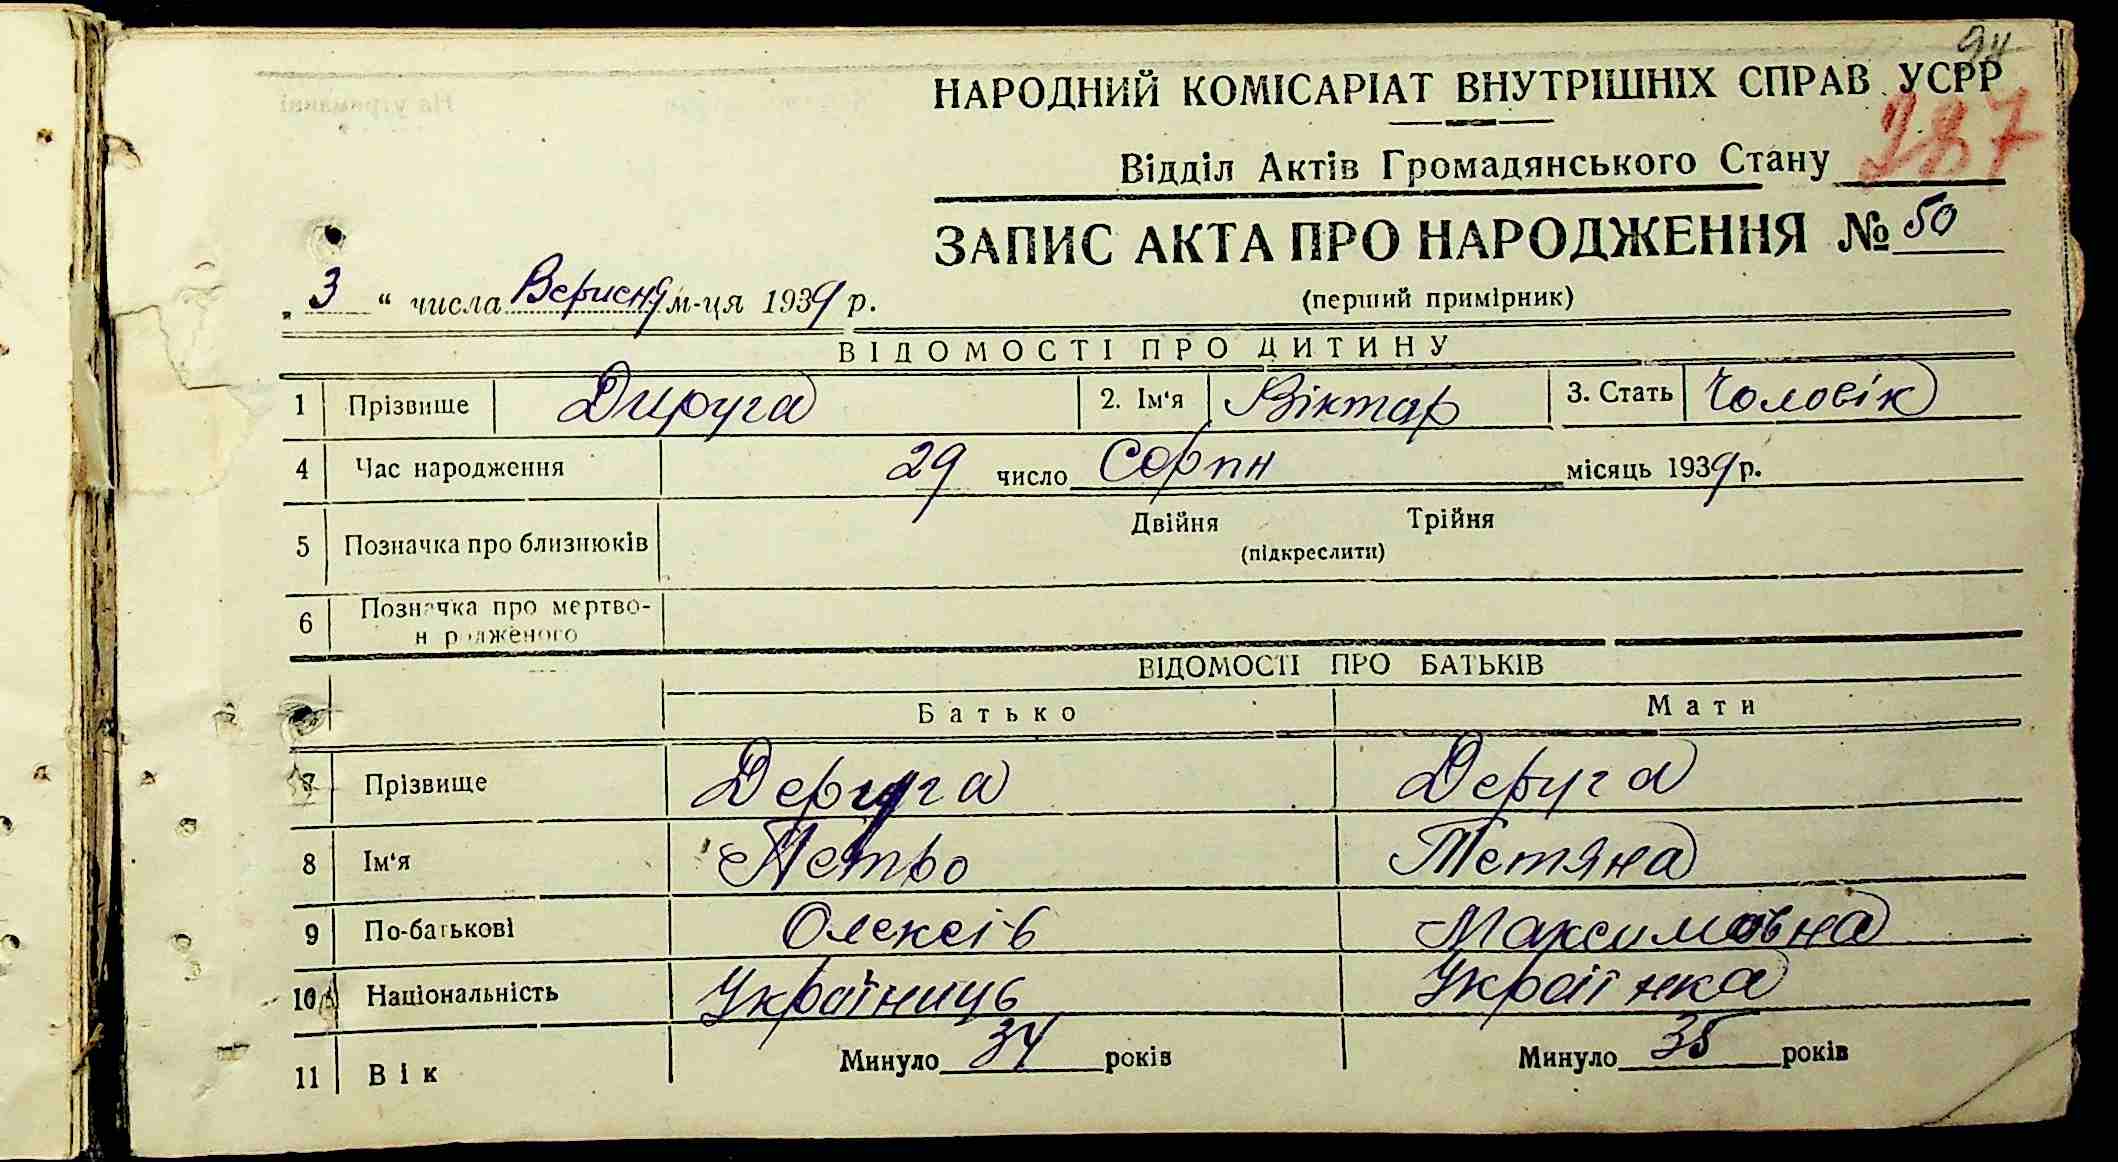 94
НАРОДНИЙ КОМІСАРІАТ ВНУТРІШНІХ СПРАВ УСРР
287
Відділ Актів Громадянського Стану
ЗАПИС АКТА ПРО НАРОДЖЕННЯ № 50
(перший примірник)
„ 3 “ числа Вересня м-ця 1939 р.
ВІДОМОСТІ ПРО ДИТИНУ
1 Прізвище Дируга 2. Ім‘я Віктар 3. Стать Чоловік
4 Час народження 29 число Серпн місяць 1939 р.
5 Позначка про близнюків Двійня Трійня
(підкреслити)
6 Позначка про мертво-
н родженого
ВІДОМОСТІ ПРО БАТЬКІВ
Батько Мати
7 Прізвище Деруга Деруга
8 Ім‘я Петро Тетяна
9 По-батькові Олексів Максимовна
10 Національність Україниць Українка
11 Вік Минуло 34 років Минуло 35 років